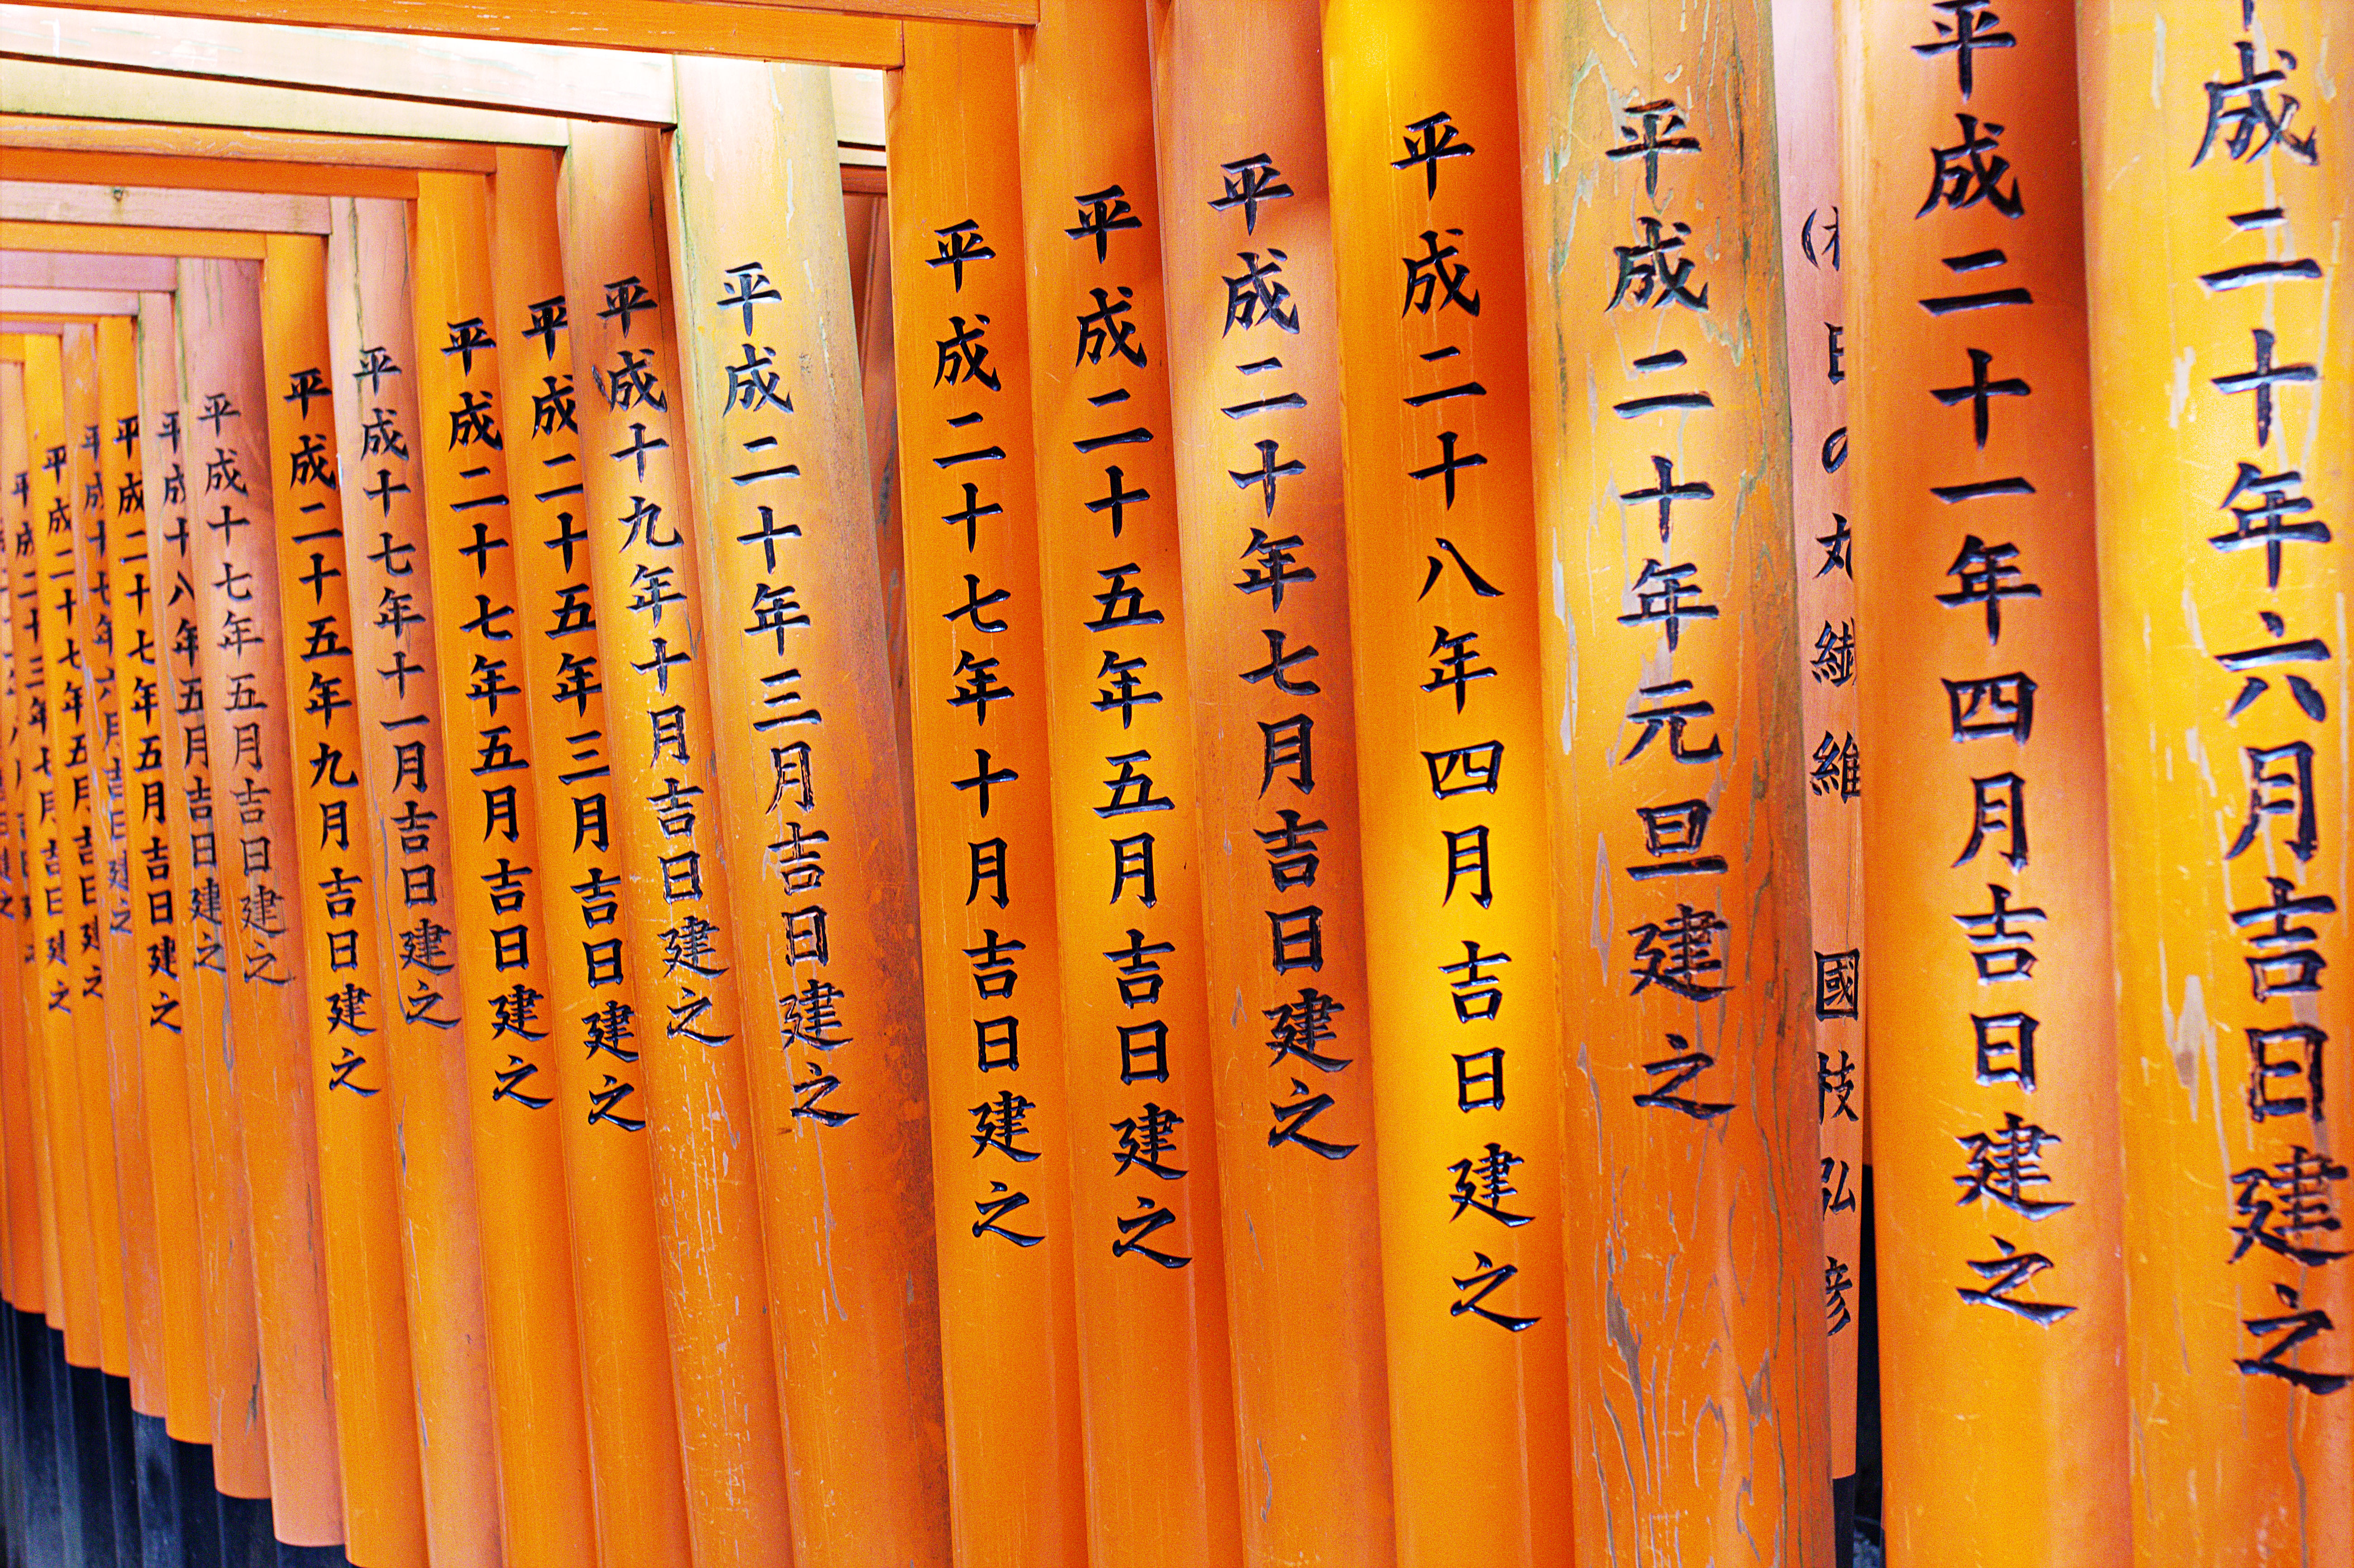 成二十年六月吉日建之
平成二十一年四月吉日建之
日の丸繊維 國枝弘彦
平成二十年元旦建之
平成二十八年四月吉日建之
平成二十年七月吉日建之
平成二十五年五月吉日建之
平成二十七年十月吉日建之
平成二十年三月吉日建之
平成十九年十月吉日建之
平成二十五年三月吉日建之
平成二十七年五月吉日建之
平成十七年十一月吉日建之
平成二十五年九月吉日建之
平成十七年五月吉日建之
平成十八年五月吉日建之
平成二十七年五月吉日建之
平成十七年六月吉日建之
平成二十七年五月吉日建之
平成二十三年七月吉日建之